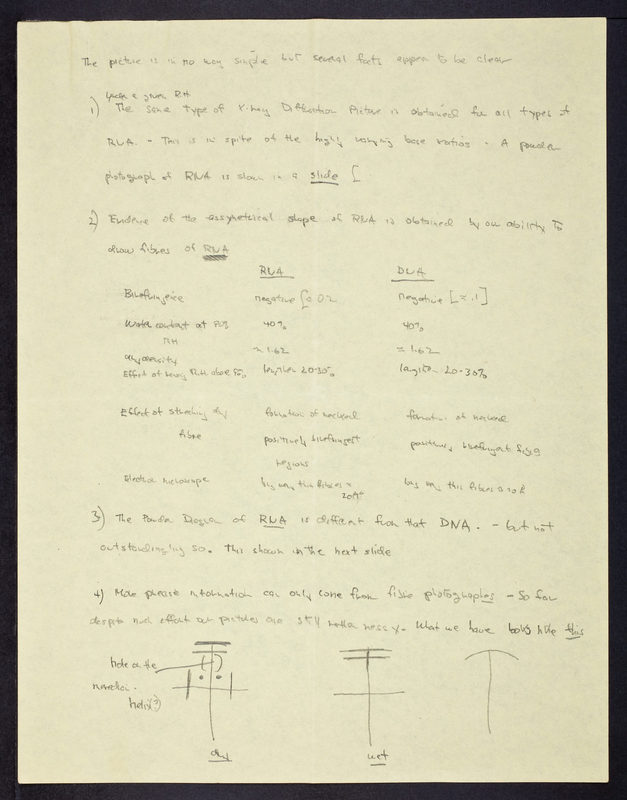 The picture is in no way simple but several facts appear to be clear
given RH
1) The same type of X-ray Diffraction Picture is obtained for all types of
RNA. - This is in spite of the highly varying base ratios. A powder
photograph of RNA is shown in a slide [
2) Evidence of the assymetrical shape of RNA is obtained by our ability to
draw fibres of RNA
RNA DNA
Birefringence negative [ 0.02 negative [≈ .1]
Water content at RH 40% 40%
dry density ≈ 1.62 ≈ 1.62
Effect of R.H. above lengthen 20-30% lengthen 20-30%
Effect of stretching dry formation of necked formation of necked
fibre positively birefringent positively birefringent
regions
Electron microscope long very thin fibres ≈ long very thin fibres
3) The Powder Diagram of RNA is different from that DNA. - but not
outstandingly so. This shown in the next slide
4) More precise information can only come from fibre photographs - So far
despite much effort our pictures are still rather messy. What we have looks like this
hole on the
meridian.
helix(?)
dry wet